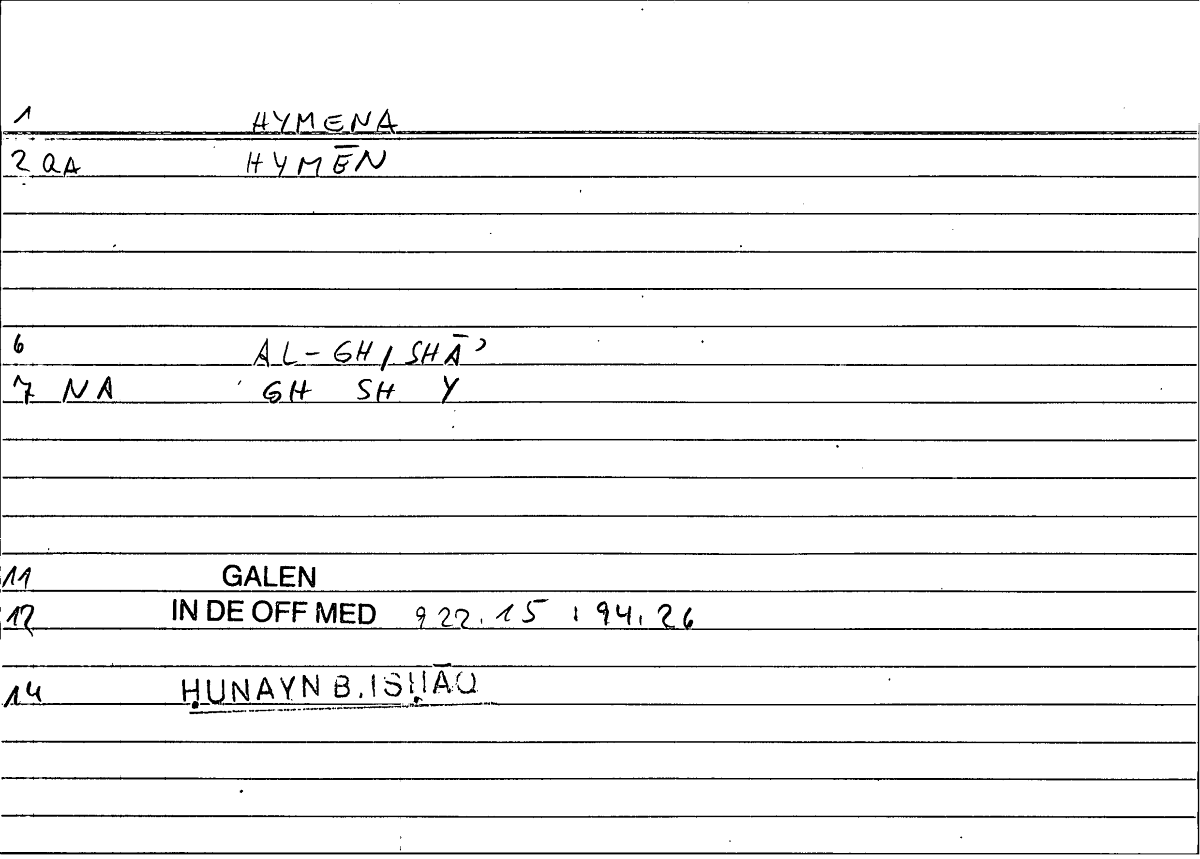 1 HYMENA
2 QA HYMĒN
6 AL-GHISHĀʾ
7 NA GH SH Y
11 GALEN
12 IN DE OFF MED 922.15 : 94.26
14 ḤUNAYN B. ISḤĀQ